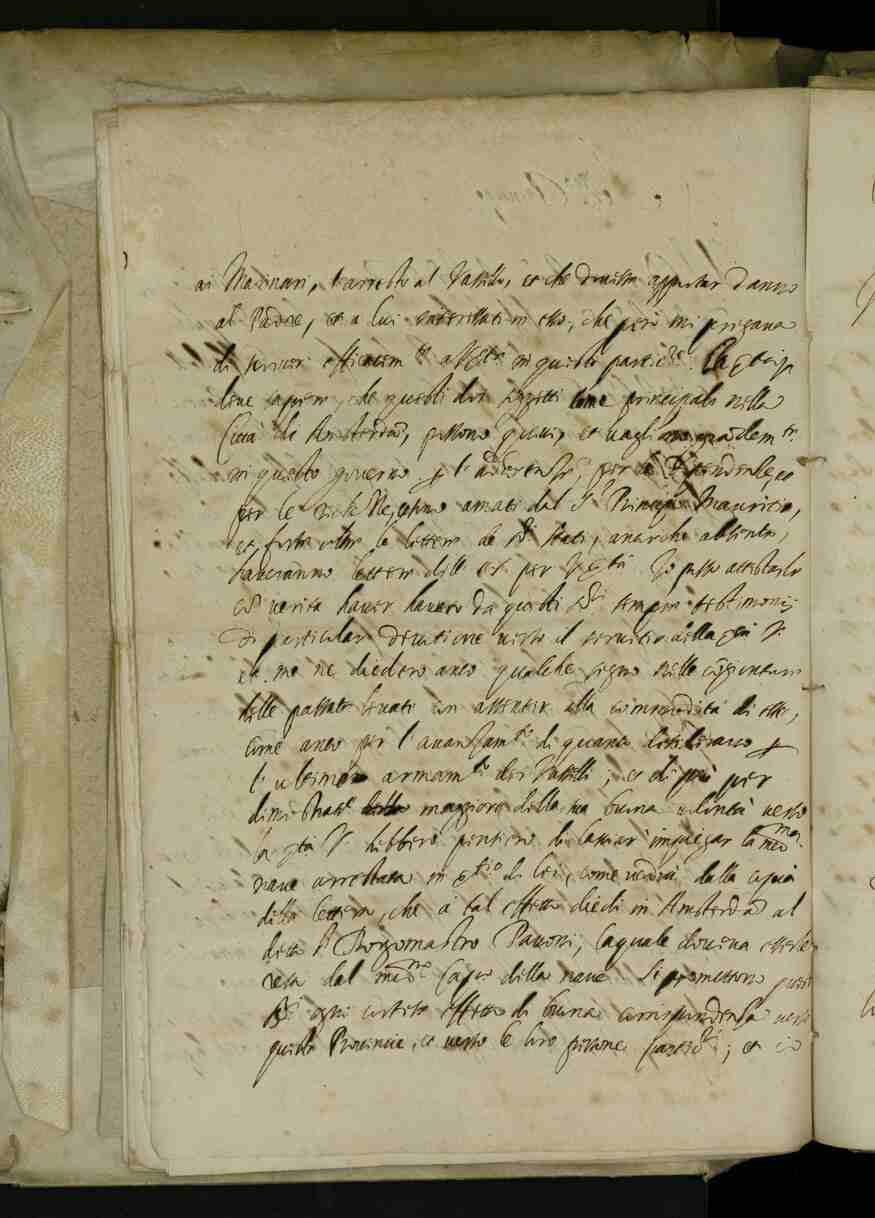 ai Marinari, l'arresto al Vassello, et che dovesse apportar danno
al Padre, et a lui interessati in esso, che però mi pregava
di scriver efficacem.te a V. Ser.tà in questo partic.re. La Ser.tà
deve sapere, che questi doi sogetti come principali nella
Città di Amsterdad, possono assai, et vagliono grandem.te
in questo governo per l'adherenze, per le dipendenze, et
per le                   amati dal S.r Principe Mauritio,
et forse oltre le lettere de S.ri Stati, anco che absente,
haveranno lettere dell' ecc. per V. Ser.tà. Io posso attestarle
con verità haver havuto da questi S.ri sempre testimonij
di particular devotione verso il servitio della Ser.tà V.
et me ne diedero anco qualche segno nelle congionture
delle passate levate con assentir alla commodità di esse,
come anco per l'avanzam.to di quanto desideravo per
l'ultimo armam.to dei Vasselli; et di più per
dimostrat.ne maggiore della sua buona volontà verso
la Ser.tà V. hebbero pensiero di lassar impiegar la med.ma
nave arrestata in ser.tio di lei, come vederà dalla copia
della lettera, che a tal effetto diedi in Amsterdad al
detto S.r Borgomastro Pauoni, la quale doveva esser
resa dal med.mo Cap.o della nave. Si promettono questi
SS.ri ogni cortese effetto di buona corrispondenza verso
queste Provincie, et verso le loro persone                ; et io